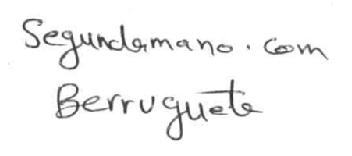 Segundamano.com
Berruguete